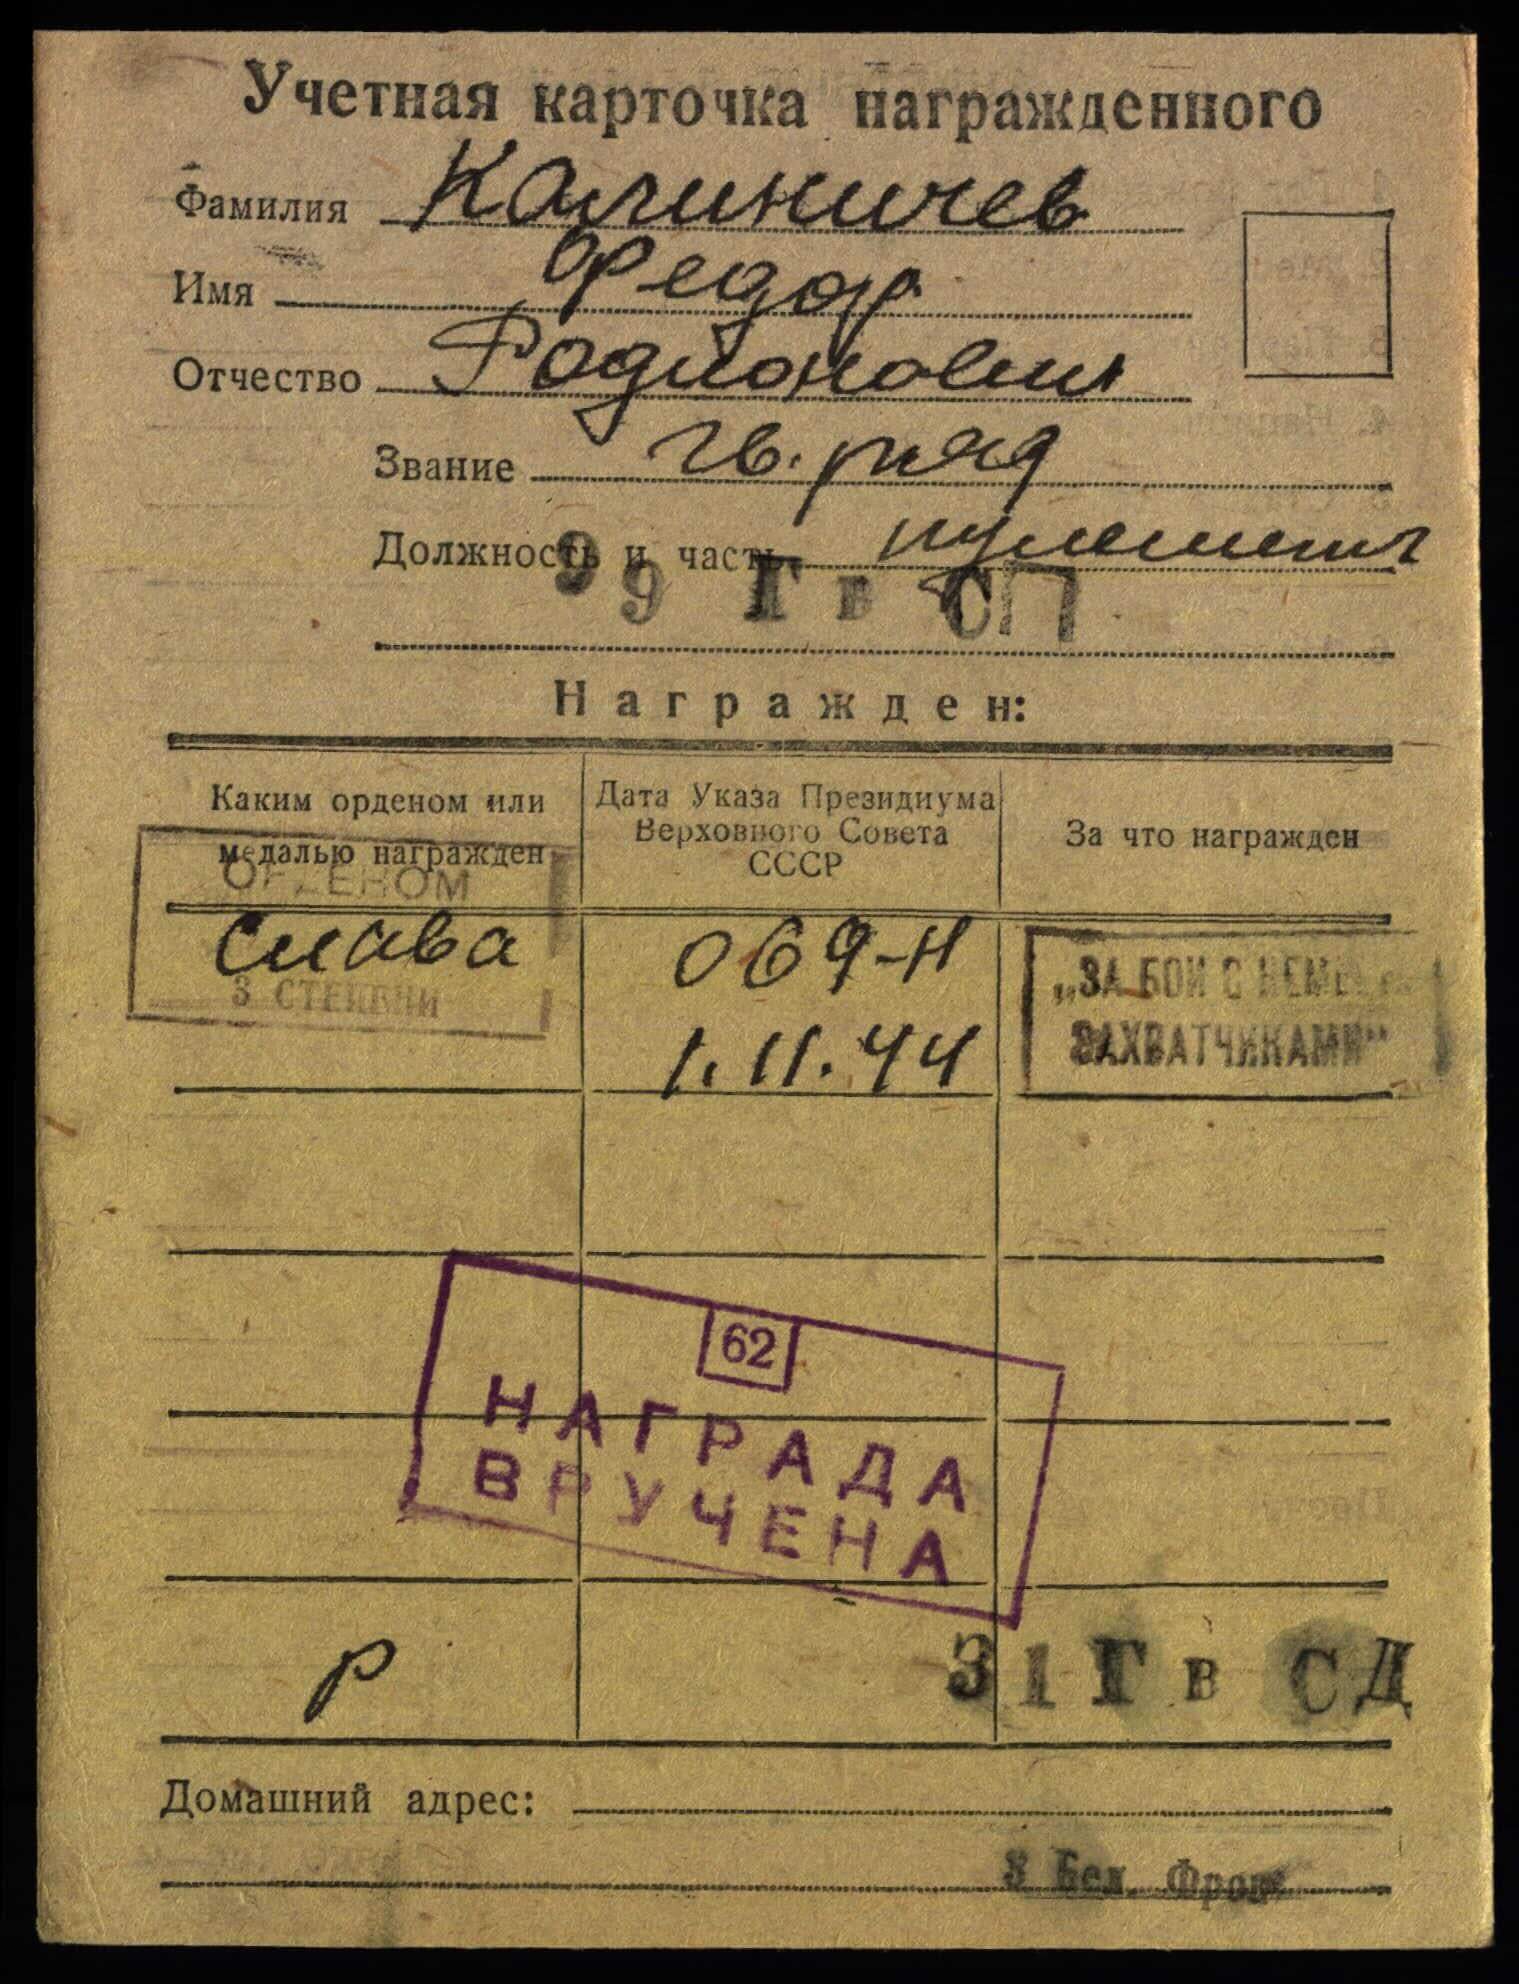 Учетная карточка награжденного
Фамилия Калиничев
Имя Федор
Отчество Родионович
Звание гв. ряд
Должность и часть пулеметч
99 Гв СП
Награжден:
Каким орденом или медалью награжден
Дата Указа Президиума Верховного Совета СССР
За что награжден
ОРДЕНОМ
Слава
3 СТЕПЕНИ
069-Н
1.11.44
„ЗА БОИ С НЕМЕЦК
ЗАХВАТЧИКАМИ"
62
НАГРАДА
ВРУЧЕНА
р
31 Гв СД
Домашний адрес:
3 Бел. Фронт